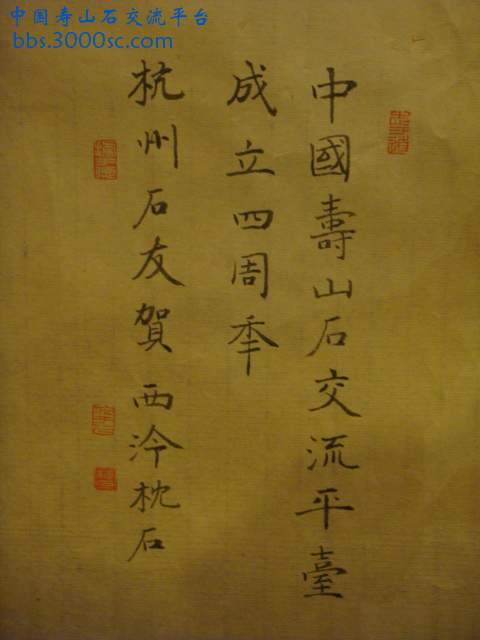 中国寿山石交流平台
bbs.3000sc.com
中國壽山石交流平臺
成立四周秊
杭州石友賀 西泠枕石